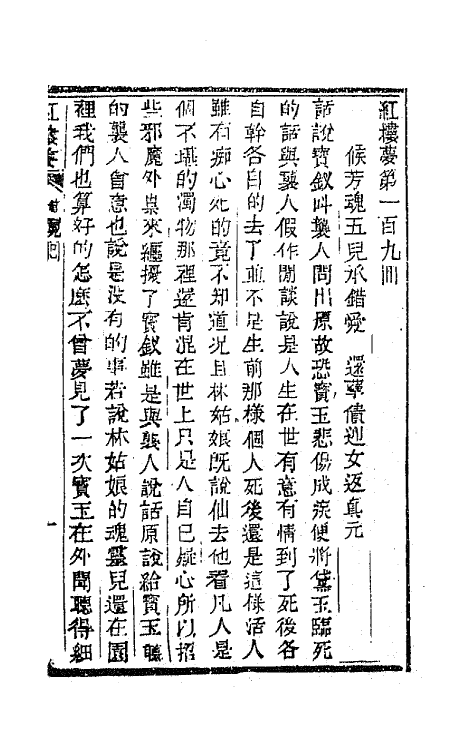 紅樓夢第一百九回
候芳魂五兒承錯愛　還孽債迎女返真元
話說寶釵叫襲人問出原故恐寶玉悲傷成疾便將黛玉臨死
的話與襲人假作閒談說是人生在世有意有情到了死後各
自幹各自的去了並不是生前那樣個人死後還是這樣活人
雖有痴心死的竟不知道况且林姑娘既說仙去他看凡人是
個不堪的濁物那裡還肯混在世上只是人自己疑心所以招
些邪魔外祟來纏擾了寶釵雖是與襲人說話原說給寶玉聽
的襲人會意也說是没有的事若說林姑娘的魂靈兒還在園
裡我們也算好的怎麽不曾夢見了一次寶玉在外聞聽得細
紅樓夢
一